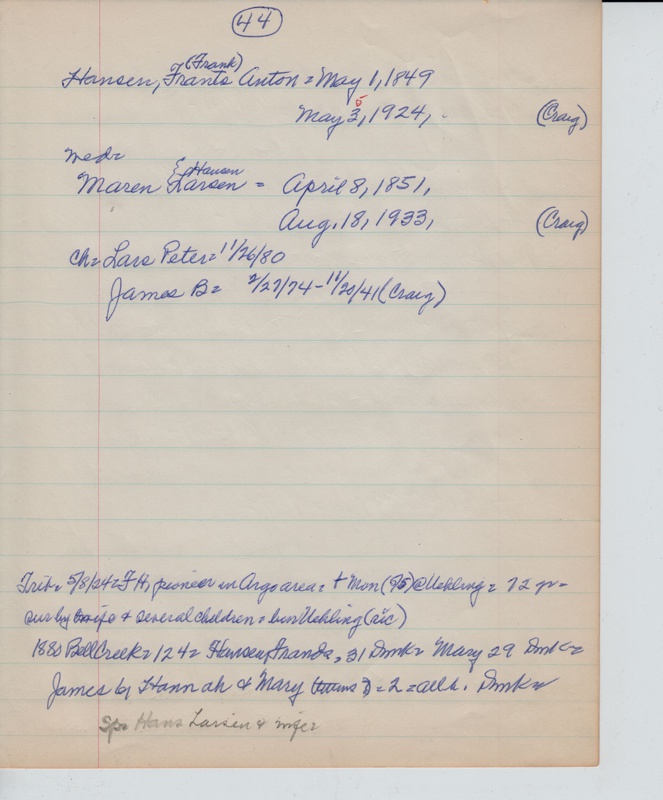 44
(Frank)
Hansen, Frants Anton = May 1, 1849
5
May 3, 1924, (Craig)
med=
Hansen
Maren Larsen = April 8, 1851,
Aug. 18, 1933, (Craig)
ch= Lars Peter = 11/26/80
James B = 2/27/74 - 11/20/41 (Craig)
Trib = 5/8/24 = F H, pioneer in Argo area = + Mon (5/5) @ Uehling = 72 yr =
sur by wife + several children = bur Uehling (sic)
1880 Bell Creek = 124 = Hansen, Frands, 31 Dmk = Mary 29 Dmk =
James 6, Hannah 4 Mary = 2 = all b. Dmk =
Sp= Hans Larsen & wife =